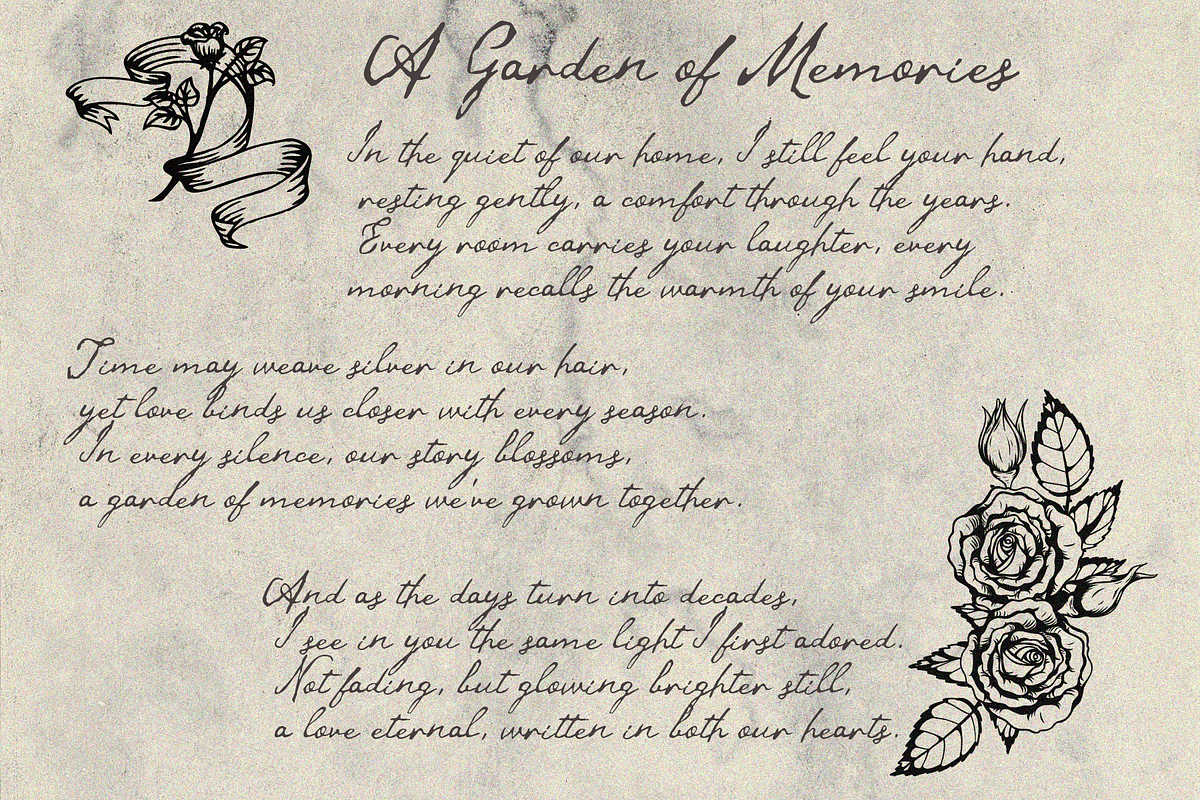 A Garden of Memories
In the quiet of our home, I still feel your hand,
resting gently, a comfort through the years.
Every room carries your laughter, every
morning recalls the warmth of your smile.
Time may weave silver in our hair,
yet love binds us closer with every season.
In every silence, our story blossoms,
a garden of memories we've grown together.
And as the days turn into decades,
I see in you the same light I first adored.
Not fading, but glowing brighter still,
a love eternal, written in both our hearts.